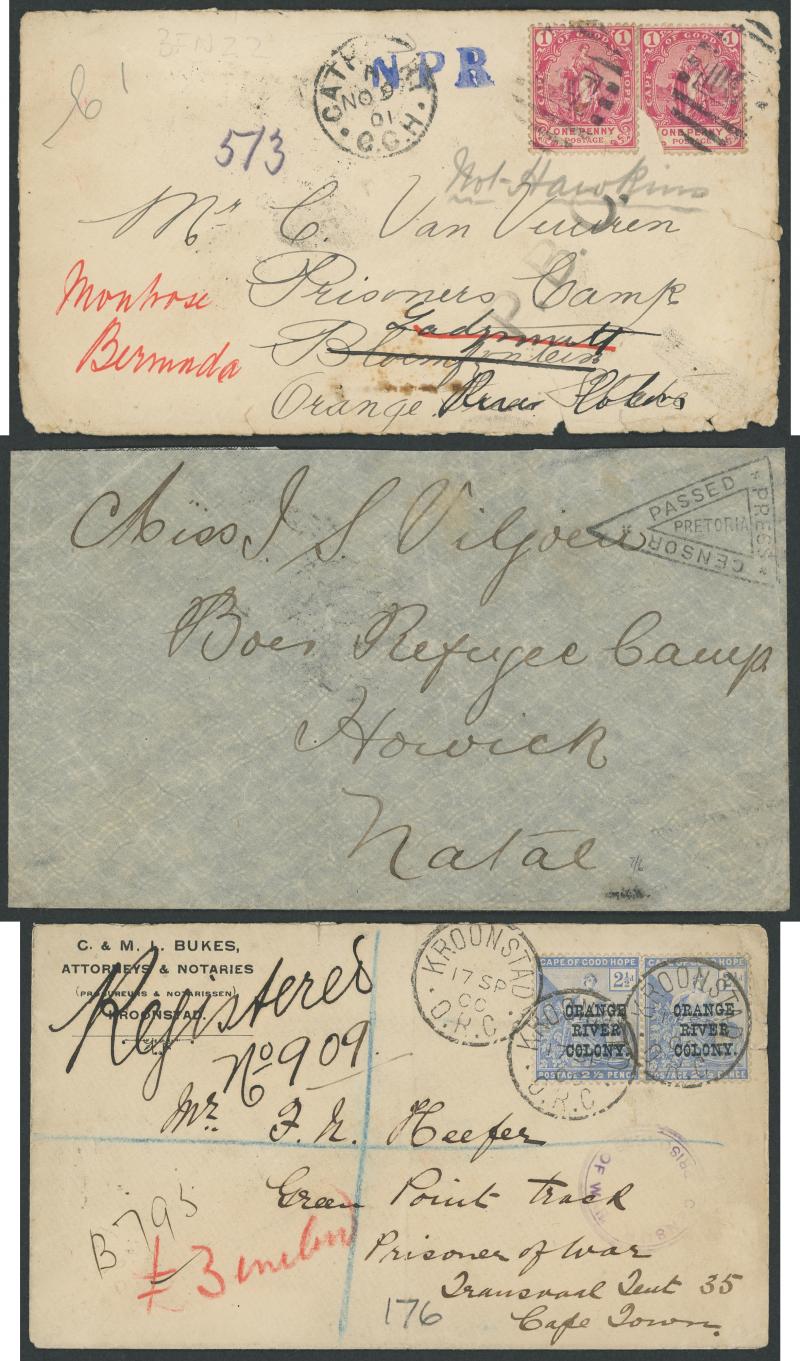 3FN22
N P R
CATHCART
NO 9
01
C.G.H.
1 CAPE OF GOOD HOPE 1
ONE PENNY
POSTAGE
1 CAPE OF GOOD HOPE 1
ONE PENNY
POSTAGE
573
Not Hawkins
Mr C. Van Vuuren
P.B.C.
Montrose
Bermuda
Prisoners Camp
Ladysmith
Bloemfontein
Orange River
PASSED
PRESS
CENSOR
PRETORIA
Miss J S Viljoen
Boer Refugee Camp
Howick
Natal
7/6
C. & M. L. BUKES,
ATTORNEYS & NOTARIES
(PROCUREURS & NOTARISSEN)
KROONSTAD.
Registered
No 909
KROONSTAD
17 SP
00
O.R.C
KROONSTAD
O.R.C
KROONSTAD
O.R.C
CAPE OF GOOD HOPE
2½
ORANGE
RIVER
COLONY.
POSTAGE 2½ PENCE
CAPE OF GOOD HOPE
2½
ORANGE
RIVER
COLONY.
POSTAGE 2½ PENCE
Mr. F. N. Heefer
Green Point track
Prisoner of War
Transvaal Tent 35
Cape Town.
OF W
B 795
£3
176